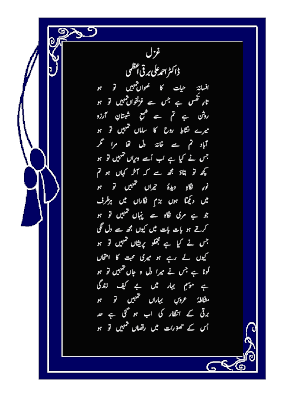 غزل
ڈاکٹر احمد علی برقی اعظمی
افسانۂ حیات کا عنواں تمہیں تو ہو
تارِ نفس ہے جس سے غزلخواں تمہیں تو ہو
روشن ہے تم سے شمعِ شبستانِ آرزو
میرے نشاطِ روح کا ساماں تمہیں تو ہو
آباد تم سے خانۂ دل تھا مرا مگر
جس نے کیا ہے اب اُسے ویراں تمہیں تو ہو
کچھ تو بتاؤ مجھ سے کہ آخر کہاں ہو تم
نورِ نگاہِ دیدۂ حیراں تمہیں تو ہو
میں دیکھتا ہوں بزمِ نگاراں میں ہر طرف
جو ہے مری نگاہ سے پنہاں تمہیں تو ہو
کرتے ہو بات بات میں کیوں مجھ سے دل لگی
جس نے کیا ہے مجھکو پریشاں تمہیں تو ہو
کیوں لے رہے ہو میری محبت کا امتحاں
لوٹا ہے جس نے میرا دل و جاں تمہیں تو ہو
ہے موسمِ بہار میں بے کیف زندگی
مشاطۂ عروسِ بہاراں تمہیں تو ہو
برقی کے انتظار کی اب ہو گئی ہے حد
اُس کے تصورات میں رقصاں تمہیں تو ہو